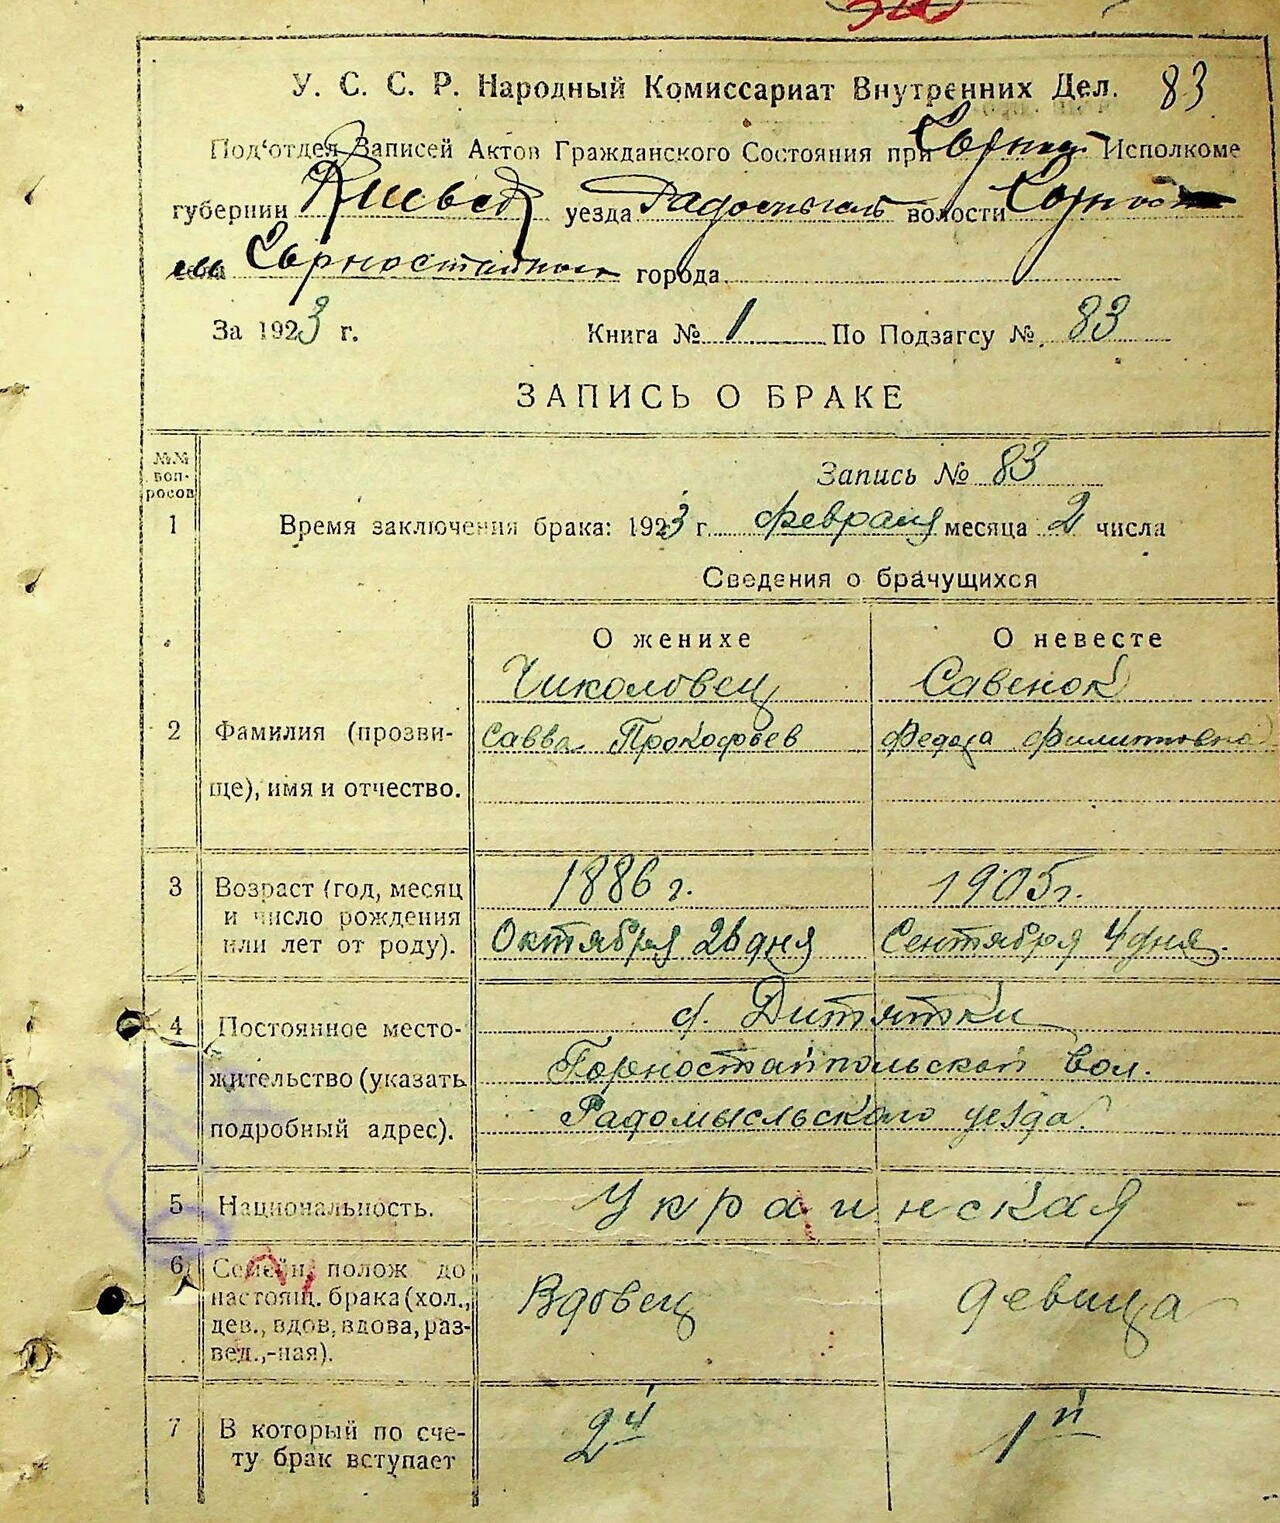 У. С. С. Р. Народный Комиссариат Внутренних Дел. 83
Под'отдел Записей Актов Гражданского Состояния при Исполкоме
губернии Киевск уезда волости
села города
За 1923 г. Книга № 1 По Подзагсу № 83
ЗАПИСЬ О БРАКЕ
№№ вопросов
Запись № 83
1 Время заключения брака: 1923 г. февраля месяца 2 числа
Сведения о брачущихся
О женихе О невесте
Чиколовец Савенок
2 Фамилия (прозви- Савва Прокофьев Федора Филиповна
ще), имя и отчество.
3 Возраст (год, месяц 1886 г. 1905 г.
и число рождения
или лет от роду). Октября 26 дня Сентября 4 дня.
4 Постоянное место- с. Дитятки
жительство (указать Горностайпольской вол.
подробный адрес). Радомысльского уезда.
5 Национальность. Украинская
6 Семейн. полож до
настоящ. брака (хол., Вдовец девица
дев., вдов, вдова, раз-
вед.,-ная).
7 В который по сче- 2й 1й
ту брак вступает